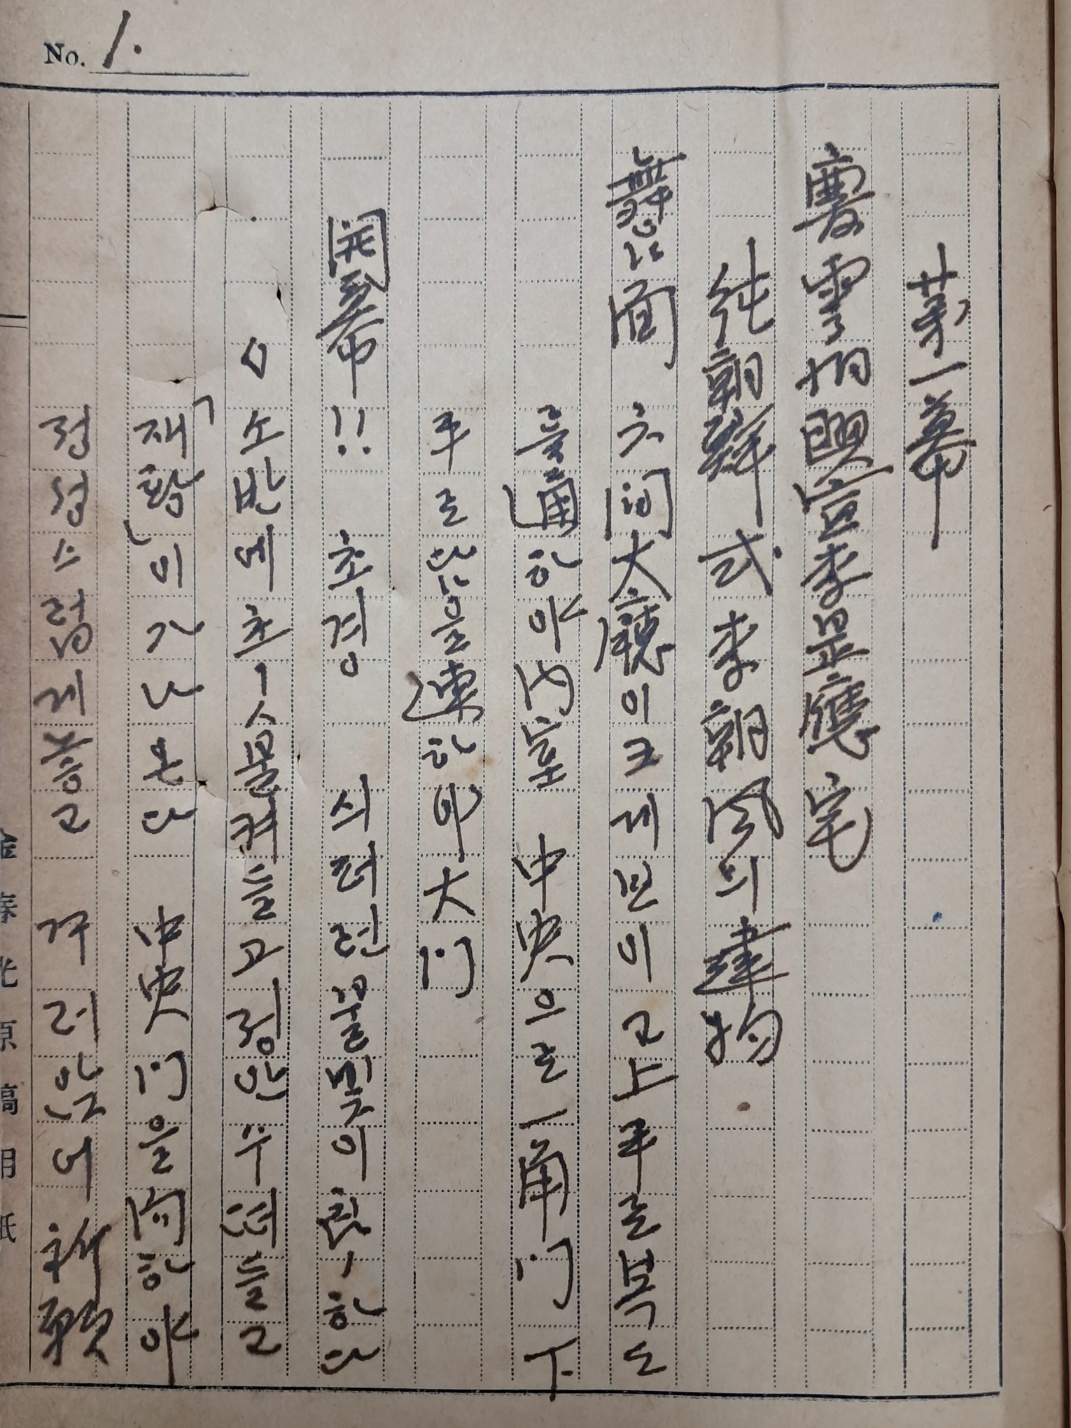 No. 1.
第一幕
慶雲洞興宣李昰應宅
純朝鮮式李朝風의建物
舞台面 六間大廳이크게보이고上手로복도
를通하야內室 中央으로一角門下
手로담을連하야大門
開幕!! 초경 싀퍼런불빛이한다
◇소반에초ㅣ불켜들고정안수떠들고
「재황」이가나온다 中央門을向하야
정성스럽게놓고 꾸러안어祈願
金春光原稿用紙